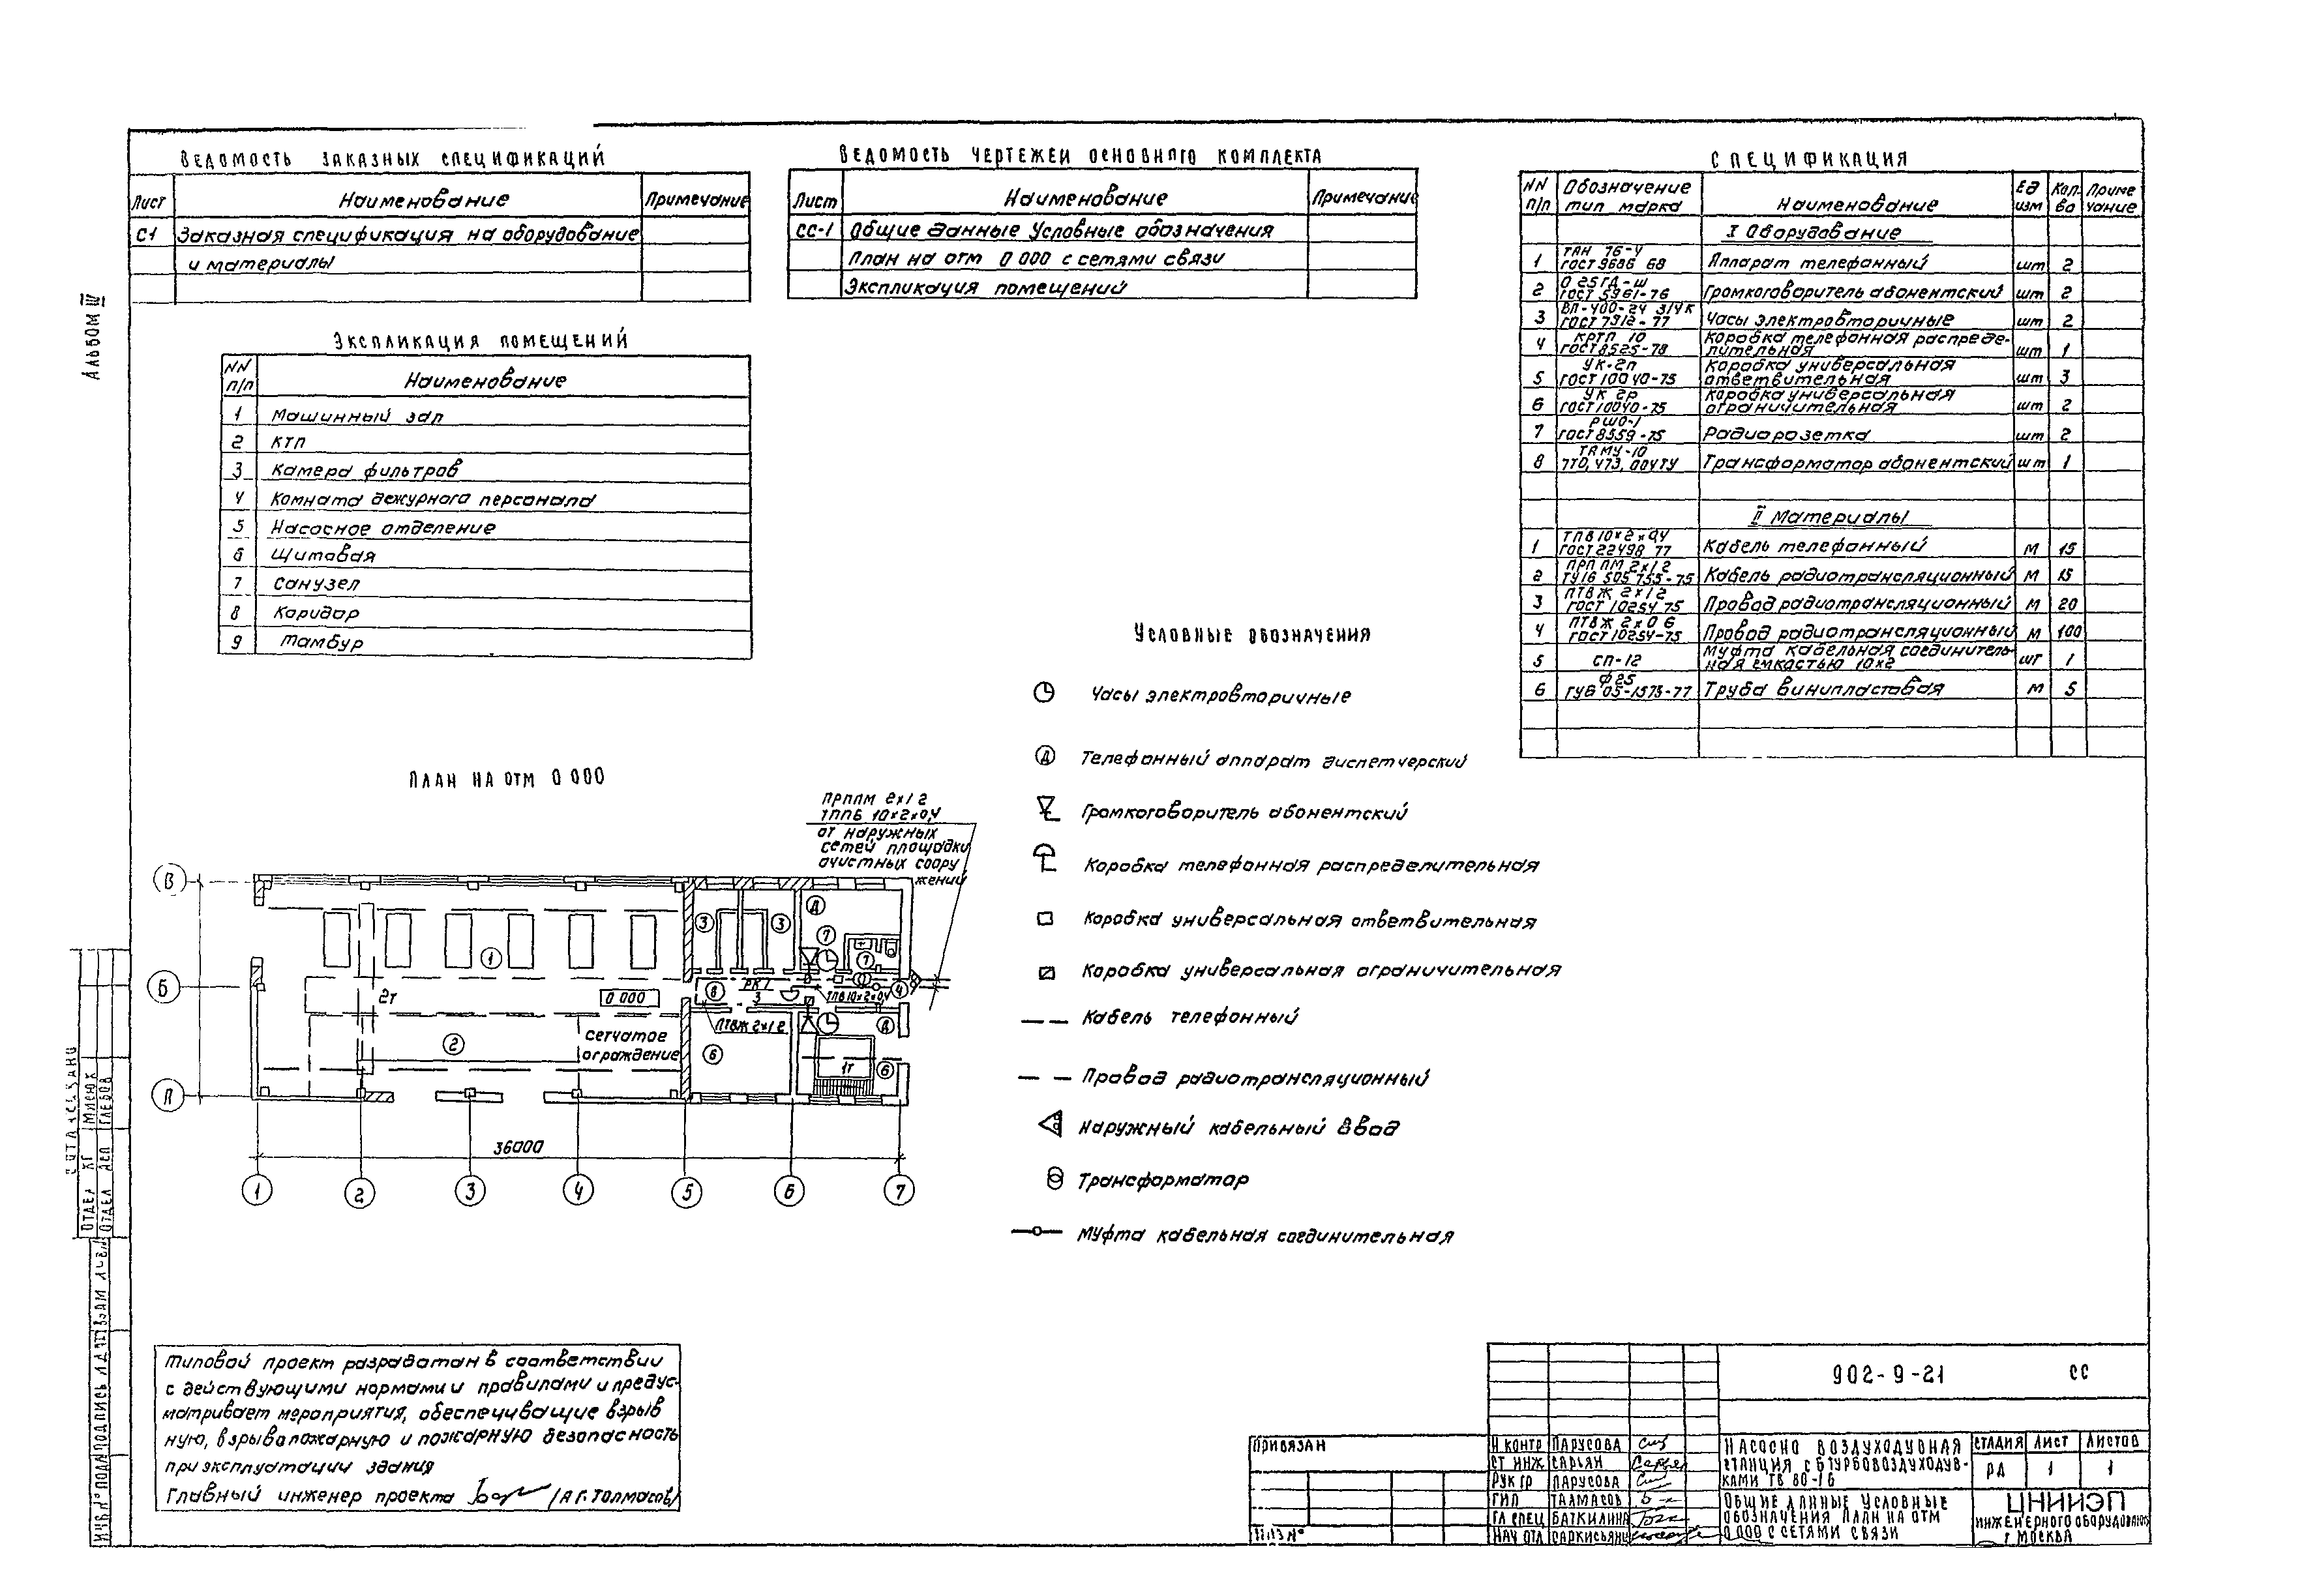 Альбом IV
Ведомость заказных спецификаций
Лист Наименование Примечание
С1 Заказная спецификация на оборудование
и материалы
Экспликация помещений
NN п/п Наименование
1 Машинный зал
2 КТП
3 Камера фильтров
4 Комната дежурного персонала
5 Насосное отделение
6 Щитовая
7 Санузел
8 Коридор
9 Тамбур
Ведомость чертежей основного комплекта
Лист Наименование Примечание
СС-1 Общие данные Условные обозначения
План на отм 0 000 с сетями связи
Экспликация помещений
Спецификация
NN п/п Обозначение тип марка Наименование Ед изм Кол-во Примечание
I Оборудование
1 ТАН 76-У ГОСТ 9686 68 Аппарат телефонный шт 2
2 0 25ГД-Ш ГОСТ 5961-76 Громкоговоритель абонентский шт 2
3 ВП-400-24 314К ГОСТ 7312-77 Часы электровторичные шт 2
4 КРТП 10 ГОСТ 8525-78 Коробка телефонная распределительная шт 1
5 УК-2П ГОСТ 10040-75 Коробка универсальная ответвительная шт 3
6 УК 2Р ГОСТ 10040-75 Коробка универсальная ограничительная шт 2
7 РШО-1 ГОСТ 8559-75 Радиорозетка шт 2
8 ТАМУ-10 Трансформатор абонентский шт 1
II Материалы
1 ТПВ 10×2×0,4 ГОСТ 22498 77 Кабель телефонный м 15
2 ПРППМ 2×1 2 ТУ16 505 755-75 Кабель радиотрансляционный м 15
3 ПТВЖ 2×1 2 ГОСТ 10254 75 Провод радиотрансляционный м 20
4 ПТВЖ 2×0 6 ГОСТ 10254-75 Провод радиотрансляционный м 100
5 СП-12 Муфта кабельная соединительная емкостью 10×2 шт 1
6 Ф25 ТУ6 05-1573-77 Труба винипластовая м 5
Условные обозначения
Часы электровторичные
Д Телефонный аппарат диспетчерский
Громкоговоритель абонентский
Коробка телефонная распределительная
Коробка универсальная ответвительная
Коробка универсальная ограничительная
Кабель телефонный
Провод радиотрансляционный
Наружный кабельный ввод
Трансформатор
Муфта кабельная соединительная
План на отм 0 000
ПРППМ 2×1 2
ТППБ 10×2×0,4
от наружных
сетей площадки
очистных соору
жений
В
3 3 Д
7
1
7
Б
2т 0 000 8 РК 1 3 ТПВ 10×2×0,4 4
ПТВЖ 2×1 2 Д
сетчатое
ограждение
2 6
1т 6
П
36000
1 2 3 4 5 6 7
Типовой проект разработан в соответствии
с действующими нормами и правилами и предус-
матривает мероприятия, обеспечивающие взрыв
ную, взрывопожарную и пожарную безопасность
при эксплуатации здания
Главный инженер проекта /А Г. Толмасов/
Согласовано
Отдел КГ Мисюк
Отдел Глебов
Привязан
Инв №
902-9-21 СС
Н контр Парусова
Ст инж Сарьян
Рук гр Парусова
ГИП Талмасов
Гл спец Баткилина
Нач отд Саркисьянц
Насосно воздуходувная
станция с 6 турбовоздуходув-
ками ТВ 80-1 6
Стадия Лист Листов
РД 1 1
Общие данные Условные
обозначения План на отм
0,000 с сетями связи
ЦНИИЭП
инженерного оборудования
г Москва